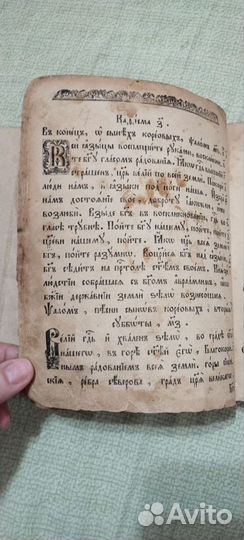 Каѳисма з҃.
Въ конецъ, ѡ сынѣхъ кореовыхъ, ѱаломъ, м҃ѕ.
Вси ѧзыцы восплещите руками, воскликни
те бг҃у гласомъ радованїѧ. Ꙗкѡ гд҃ь вышнїи
страшенъ, цр҃ь велїи по всей земли. Покори
люди намъ, и ѧзыки под ноги нашѧ. Избра
намъ достоѧнїе свое, доброту їаковлю, юже
возлюби. Взыде бг҃ъ въ воскликновенїи, гд҃ь во
гласѣ трубнѣ. Пойте бг҃у нашему, пойте, пойте
цр҃ви нашему, пойте. Ꙗкѡ цр҃ь всеѧ земли
бг҃ъ, пойте разумнѡ. Воцр҃исѧ бг҃ъ над ѧзыки,
бг҃ъ сѣдитъ на прⷭ҇толѣ ст҃ѣмъ своемъ. Кнѧзи
людстїи собрашасѧ съ бг҃омъ авраамлимъ, ꙗкѡ
бж҃їи державнїи земли ѕѣлѡ вознесошасѧ.
Ѱаломъ, пѣсни сынѡвъ кореовыхъ, вторыѧ
субботы, м҃з.
Велїй гд҃ь и хваленъ ѕѣлѡ, во градѣ бг҃а
нашегѡ, въ горѣ ст҃ѣй егѡ, Благокоре
нымъ радованїемъ всеѧ земли. горы сїѡн
скїѧ, ребра сѣверова, градъ цр҃ѧ великагѡ.
Avito